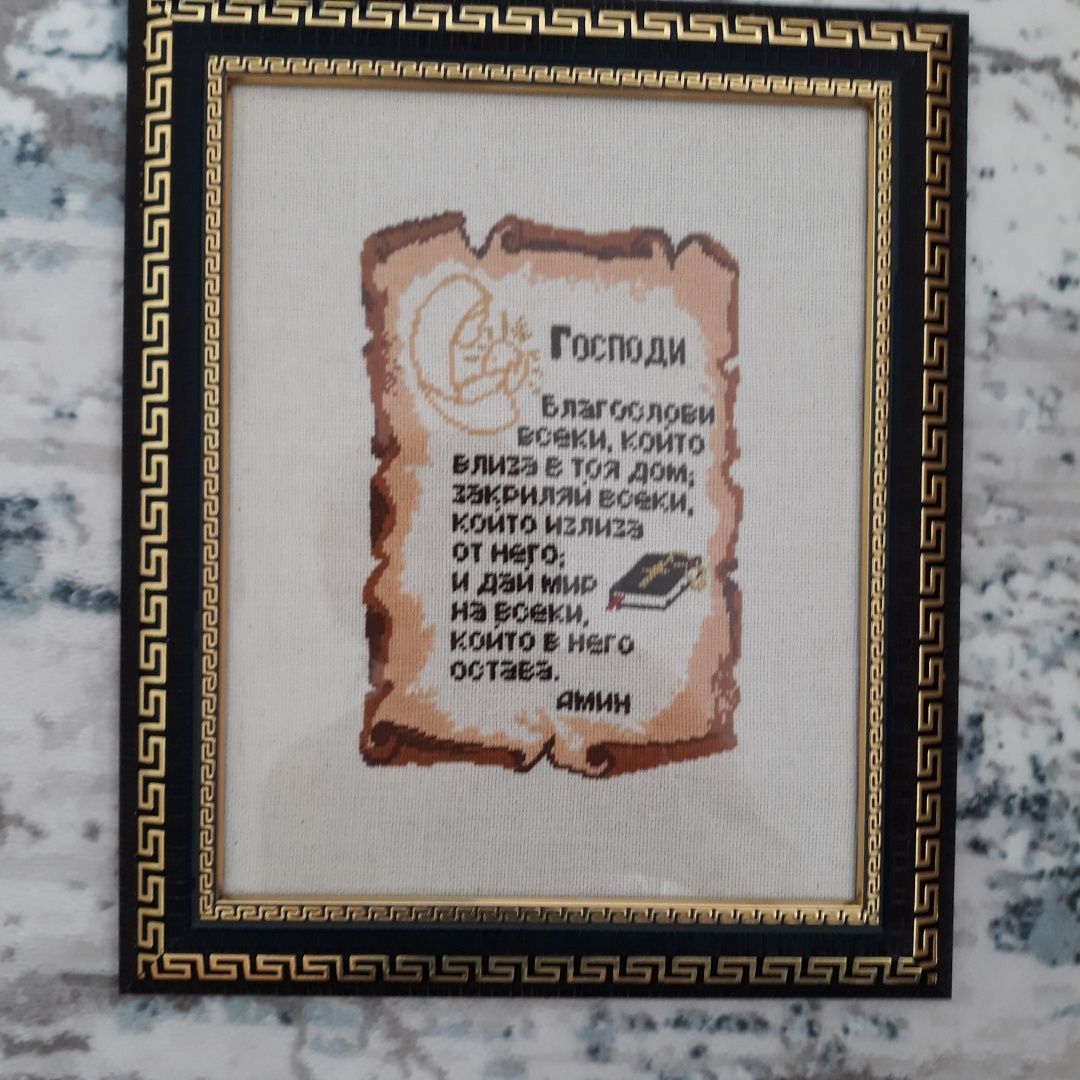 Господи
Благослови
всеки, който
влиза в тоя дом;
закриляй всеки,
който излиза
от него;
и дай мир
на всеки,
който в него
остава.
амин